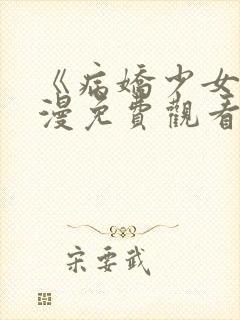 《病嬌少女
漫免費觀看
宋要武